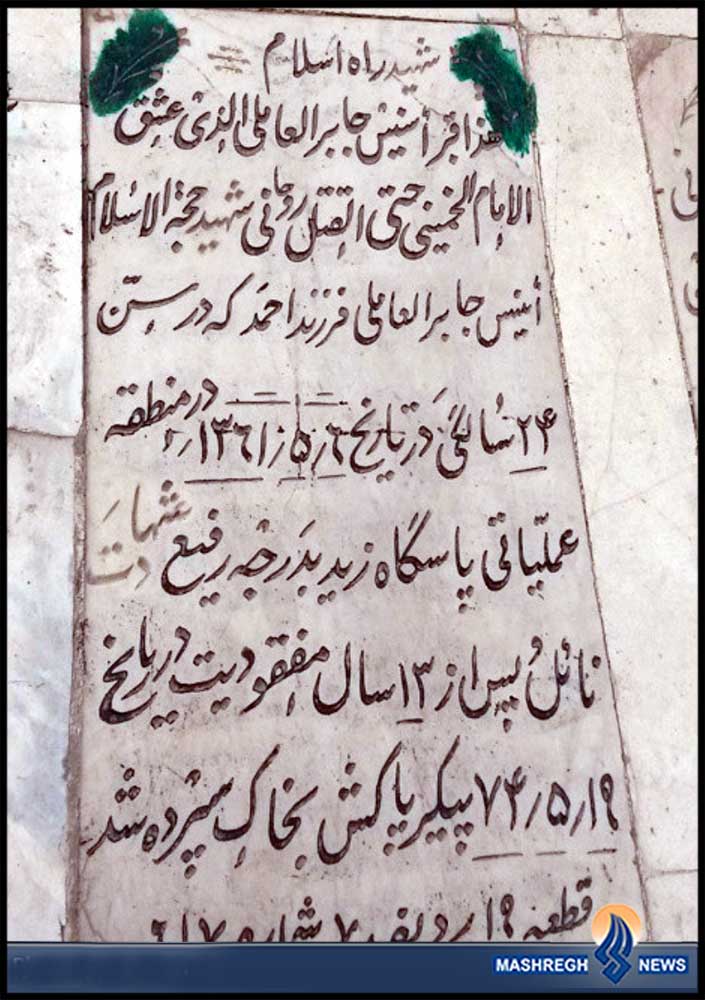 شهید راه اسلام
هذا قبر أنیس جابر العاملی الذی عشق
الإمام الخمینی حتی القتل روحانی شهید حجة الاسلام
أنیس جابر العاملی فرزند احمد که در سنّ
۲۴ سالگی در تاریخ ۱۳۶۱٫۵٫۶ در منطقه
عملیّاتی پاسگاه زید بدرجه رفیع شهادت
نائل و پس از ۱۳ سال مفقودیت در تاریخ
۷۴٫۵٫۱۹ پیکر پاکش بخاک سپرده شد
قطعه ۱۹ ردیف ۷ شماره
MASHREGH NEWS